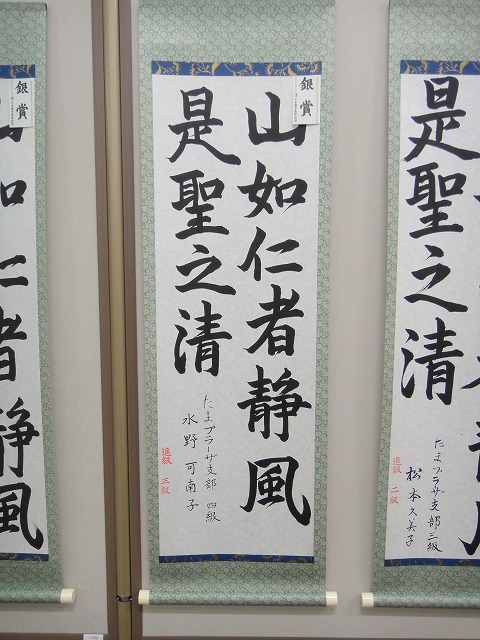 銀賞
山如仁者静風
是聖之清
たまプラーザ支部 四級
水野可南子
進級 三級
銀賞
山如仁者静風
是聖之清
たまプラーザ支部 三級
松本久美子
進級 二級